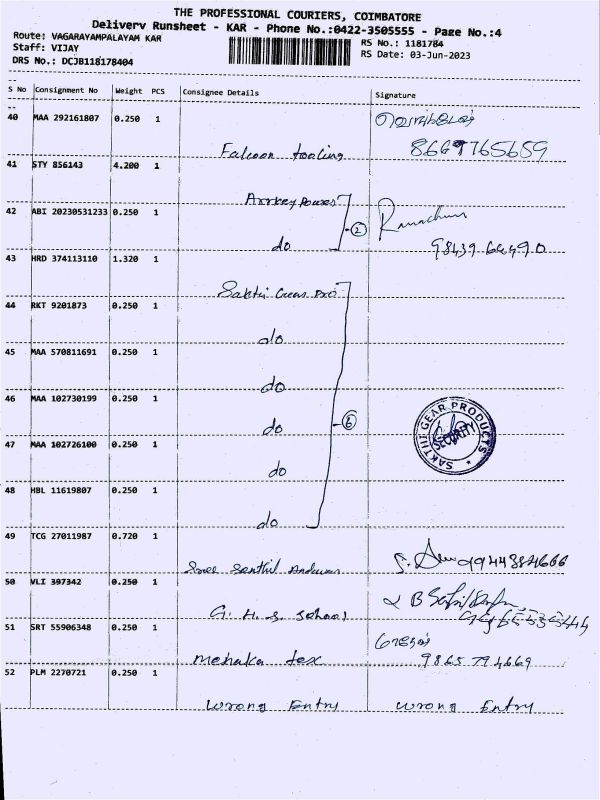 THE PROFESSIONAL COURIERS, COIMBATORE
Delivery Runsheet - KAR - Phone No.:0422-3505555 - Page No.:4
Route: VAGARAYAMPALAYAM KAR
RS No.: 1181784
Staff: VIJAY
RS Date: 03-Jun-2023
DRS No.: DCJB118178404
S No Consignment No Weight PCS Consignee Details Signature
40 MAA 292161807 0.250 1
Falcoon tooling 8667765659
41 STY 856143 4.200 1
42 ABI 20230531233 0.250 1
do 2
43 HRD 374113110 1.320 1
Sakthi Gear Pro
44 RKT 9201873 0.250 1
do
45 MAA 570811691 0.250 1
do
46 MAA 102730199 0.250 1
do 6
SAKTHI GEAR PRODUCTS
SECURITY
47 MAA 102726100 0.250 1
do
48 HBL 11619807 0.250 1
do
49 TCG 27011987 0.720 1
Sree Senthil Andavar
50 VLI 397342 0.250 1
G. H. S. School
51 SRT 55906348 0.250 1
Menaka tex 9865794669
52 PLM 2270721 0.250 1
Wrong Entry Wrong Entry